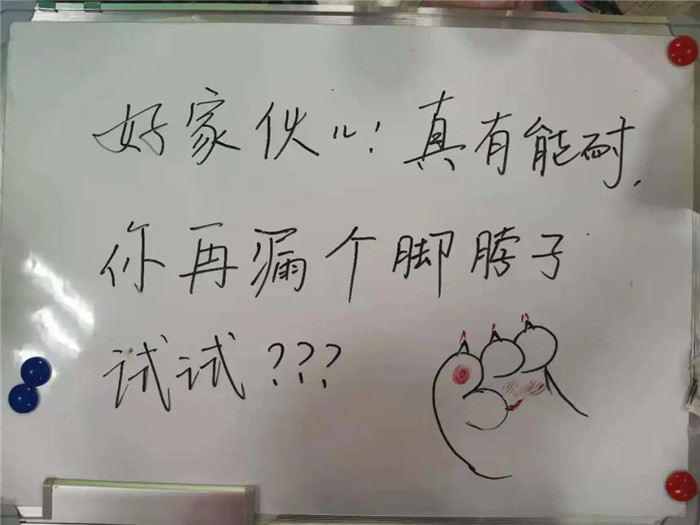 好家伙儿!真有能耐,
你再漏个脚脖子
试试???